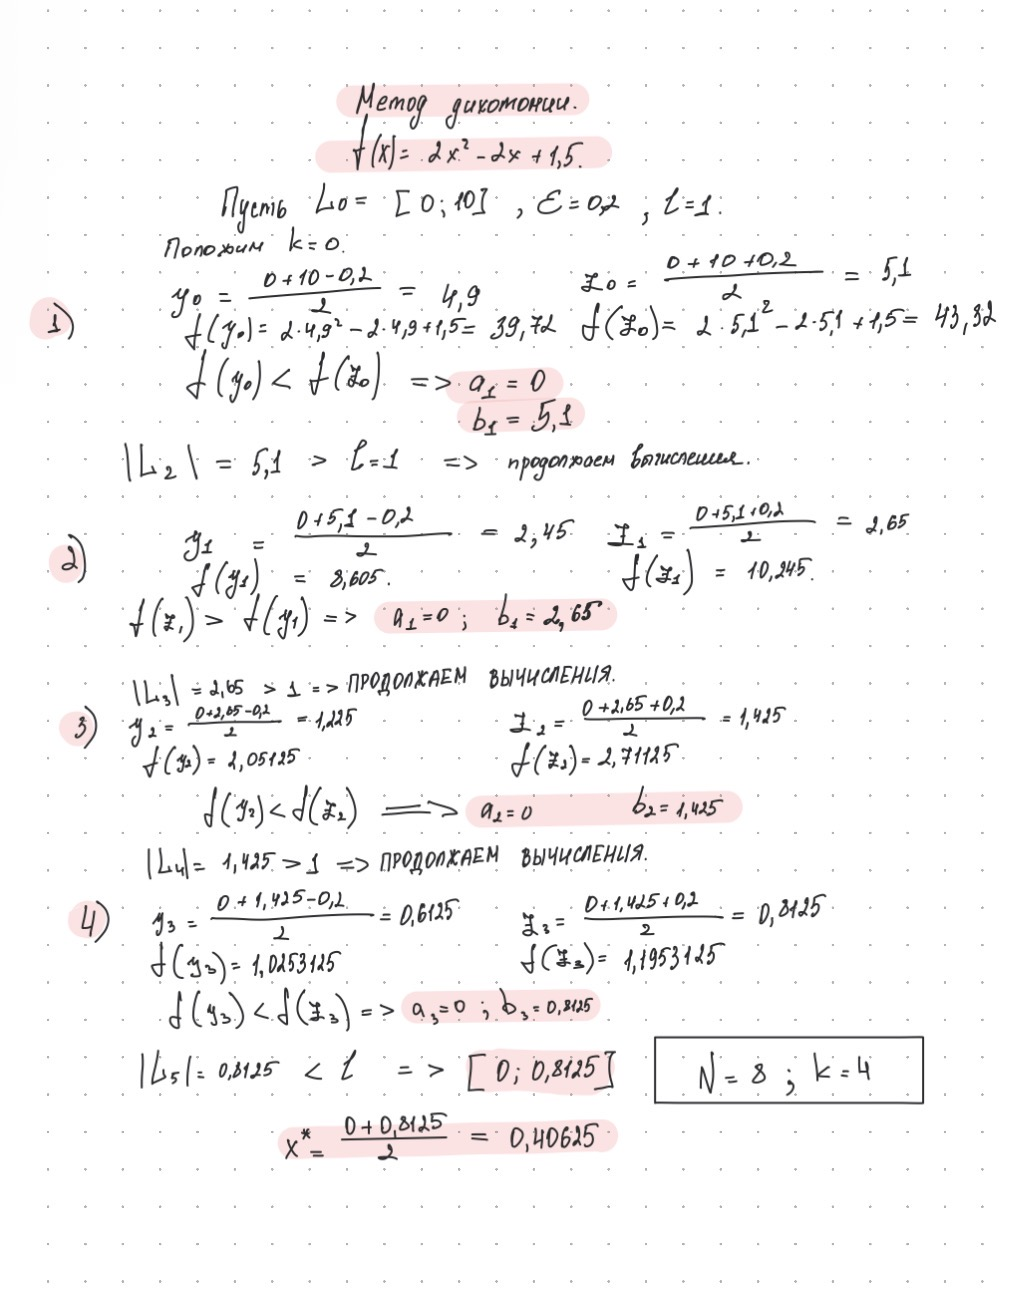 Метод дихотомии.
f(x) = 2x² - 2x + 1,5.
Пусть L₀ = [0; 10] , ε = 0,2 , l = 1.
Положим k = 0.
1) y₀ = (0 + 10 - 0,2)/2 = 4,9 z₀ = (0 + 10 + 0,2)/2 = 5,1
f(y₀) = 2·4,9² - 2·4,9 + 1,5 = 39,72 f(z₀) = 2·5,1² - 2·5,1 + 1,5 = 43,32
f(y₀) < f(z₀) => a₁ = 0
b₁ = 5,1
|L₂| = 5,1 > l = 1 => продолжаем вычисления.
2) y₁ = (0 + 5,1 - 0,2)/2 = 2,45 z₁ = (0 + 5,1 + 0,2)/2 = 2,65
f(y₁) = 8,605. f(z₁) = 10,245.
f(z₁) > f(y₁) => a₁ = 0 ; b₁ = 2,65
|L₃| = 2,65 > 1 => ПРОДОЛЖАЕМ ВЫЧИСЛЕНИЯ.
3) y₂ = (0 + 2,65 - 0,2)/2 = 1,225 z₂ = (0 + 2,65 + 0,2)/2 = 1,425
f(y₂) = 2,05125 f(z₂) = 2,71125
f(y₂) < f(z₂) => a₂ = 0 b₂ = 1,425
|L₄| = 1,425 > 1 => ПРОДОЛЖАЕМ ВЫЧИСЛЕНИЯ.
4) y₃ = (0 + 1,425 - 0,2)/2 = 0,6125 z₃ = (0 + 1,425 + 0,2)/2 = 0,8125
f(y₃) = 1,0253125 f(z₃) = 1,1953125
f(y₃) < f(z₃) => a₃ = 0 ; b₃ = 0,8125
|L₅| = 0,8125 < l => [0; 0,8125] N = 8 ; k = 4
x* = (0 + 0,8125)/2 = 0,40625